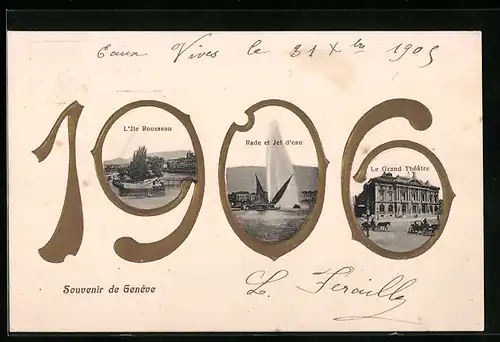 Eaux Vives le 31 Xbre 1905
1906
L'Ile Rousseau
Rade et Jet d'eau
Le Grand Théâtre
Souvenir de Genève